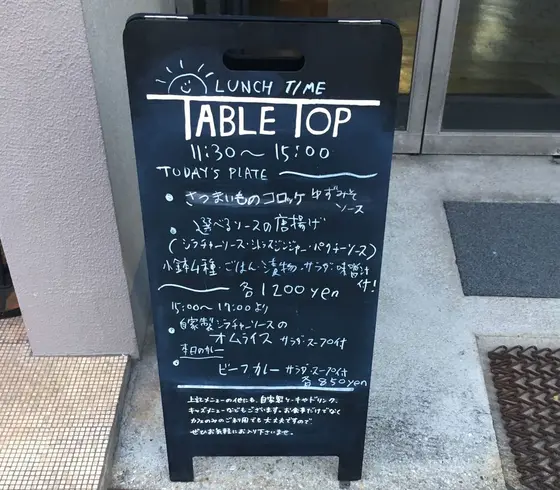 LUNCH TIME
TABLE TOP
11:30～15:00
TODAY'S PLATE
さつまいものコロッケ ゆずみそ
ソース
選べるソースの唐揚げ
(シラチャーソース・ジンジャー・パクチーソース)
小鉢4種・ごはん・漬物・サラダ・味噌汁
付!
各1200yen
15:00～17:00より
自家製シラチャーソースの
オムライス サラダ・スープ付
本日のカレー
ビーフカレー サラダ・スープ付
各850yen
上記メニューの他にも、自家製ケーキやドリンク、
キッズメニューなどもございます。お食事だけでなく
カフェのみのご利用でも大丈夫ですので
ぜひお気軽にお入り下さいませ。